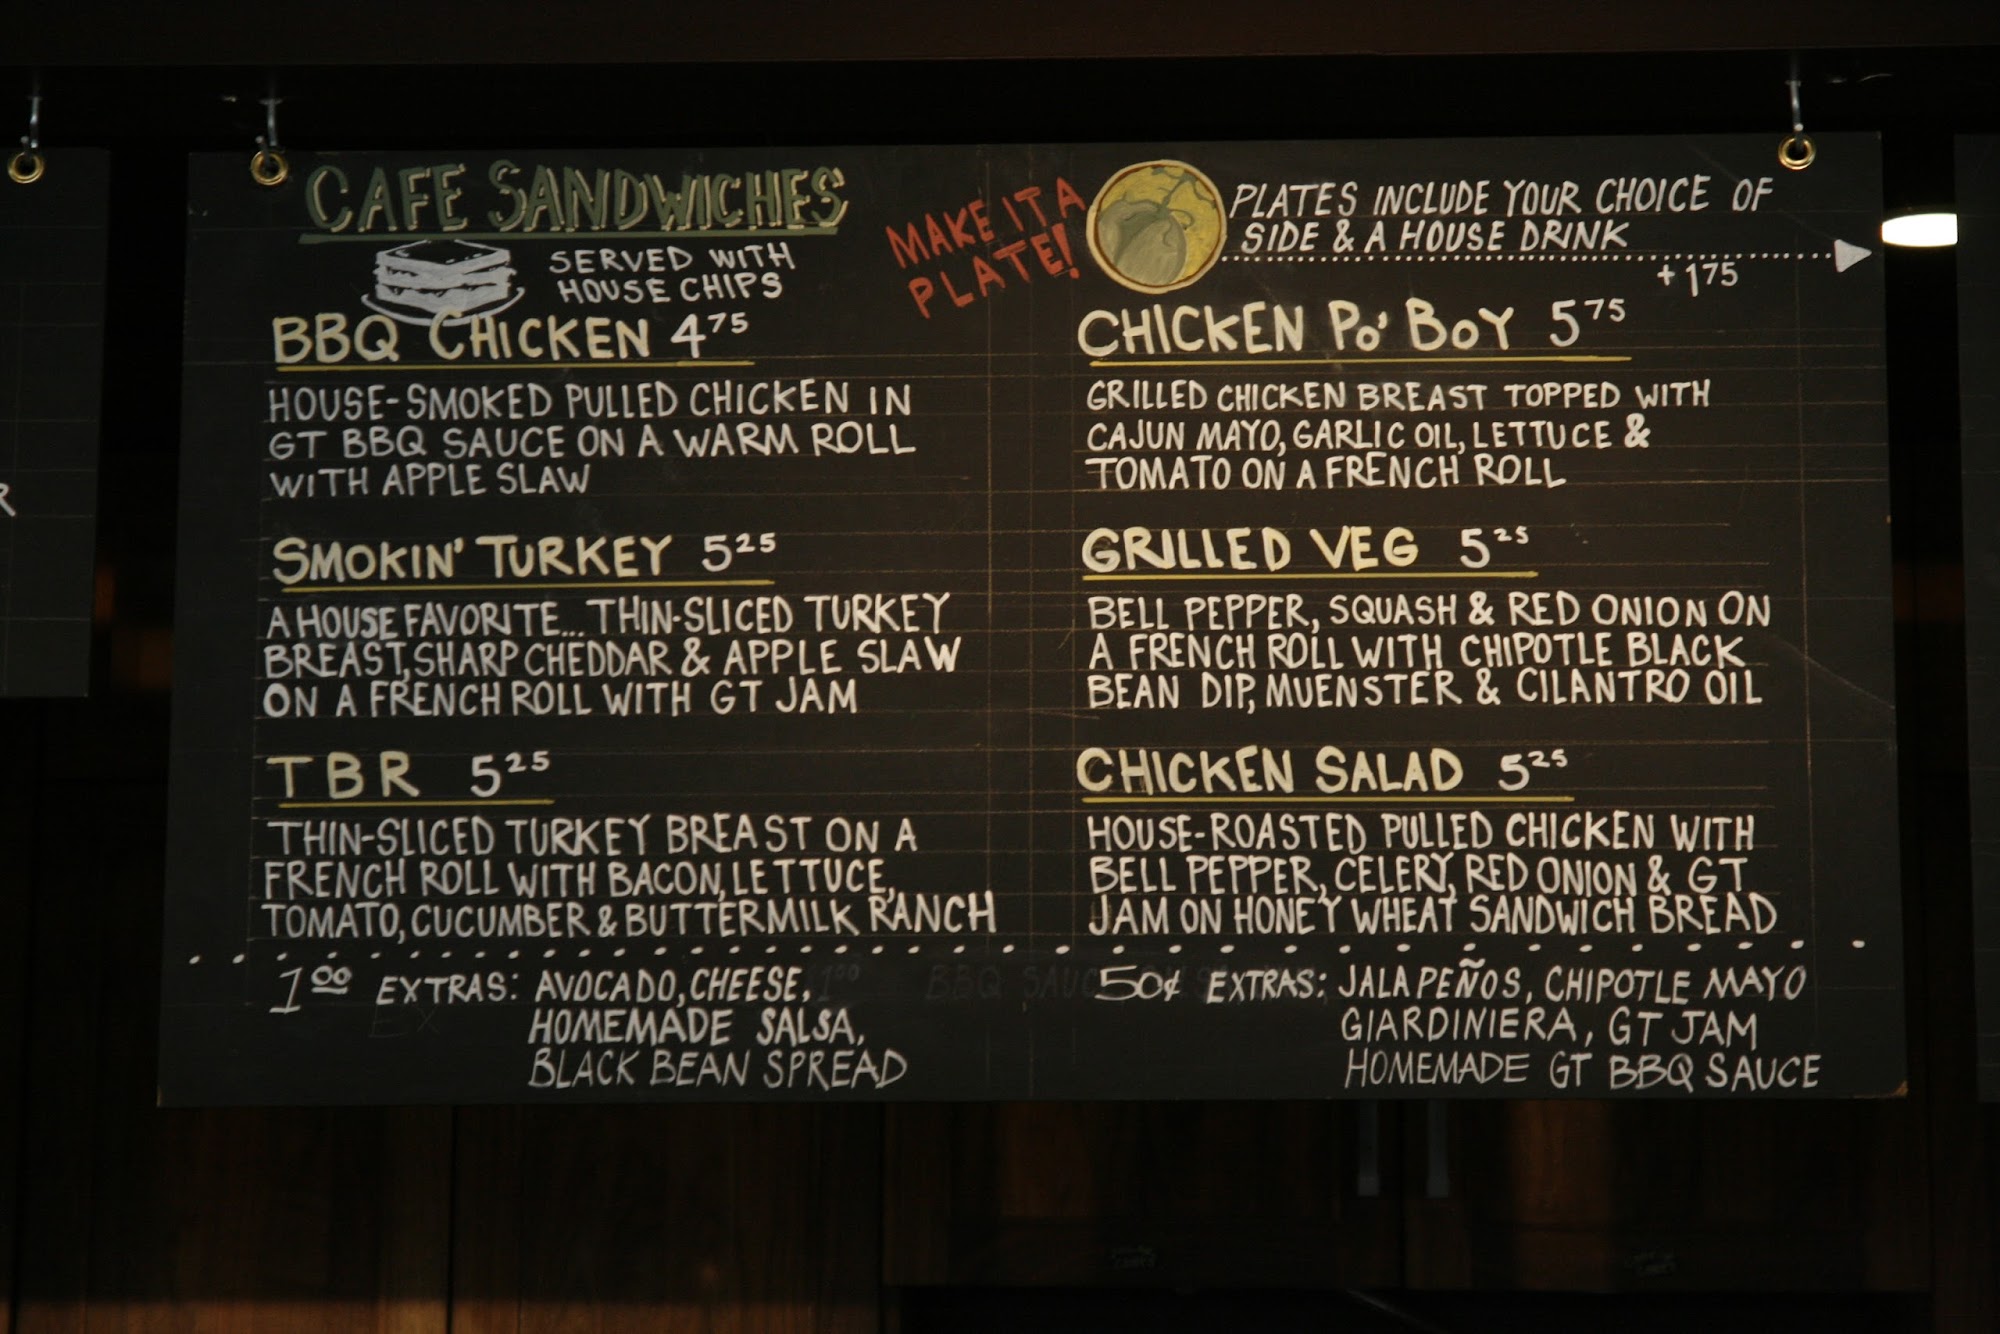 CAFE SANDWICHES
SERVED WITH
HOUSE CHIPS
MAKE IT A
PLATE!
PLATES INCLUDE YOUR CHOICE OF
SIDE & A HOUSE DRINK
+175
BBQ CHICKEN 475
HOUSE-SMOKED PULLED CHICKEN IN
GT BBQ SAUCE ON A WARM ROLL
WITH APPLE SLAW
SMOKIN' TURKEY 525
A HOUSE FAVORITE... THIN-SLICED TURKEY
BREAST, SHARP CHEDDAR & APPLE SLAW
ON A FRENCH ROLL WITH GT JAM
TBR 525
THIN-SLICED TURKEY BREAST ON A
FRENCH ROLL WITH BACON, LETTUCE,
TOMATO, CUCUMBER & BUTTERMILK RANCH
CHICKEN PO' BOY 575
GRILLED CHICKEN BREAST TOPPED WITH
CAJUN MAYO, GARLIC OIL, LETTUCE &
TOMATO ON A FRENCH ROLL
GRILLED VEG 525
BELL PEPPER, SQUASH & RED ONION ON
A FRENCH ROLL WITH CHIPOTLE BLACK
BEAN DIP, MUENSTER & CILANTRO OIL
CHICKEN SALAD 525
HOUSE-ROASTED PULLED CHICKEN WITH
BELL PEPPER, CELERY, RED ONION & GT
JAM ON HONEY WHEAT SANDWICH BREAD
100 EXTRAS: AVOCADO, CHEESE,
HOMEMADE SALSA,
BLACK BEAN SPREAD
50¢ EXTRAS: JALAPEÑOS, CHIPOTLE MAYO
GIARDINIERA, GT JAM
HOMEMADE GT BBQ SAUCE